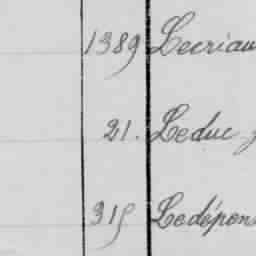 1389 Lecriau
21. Leduc
315 Ledépen